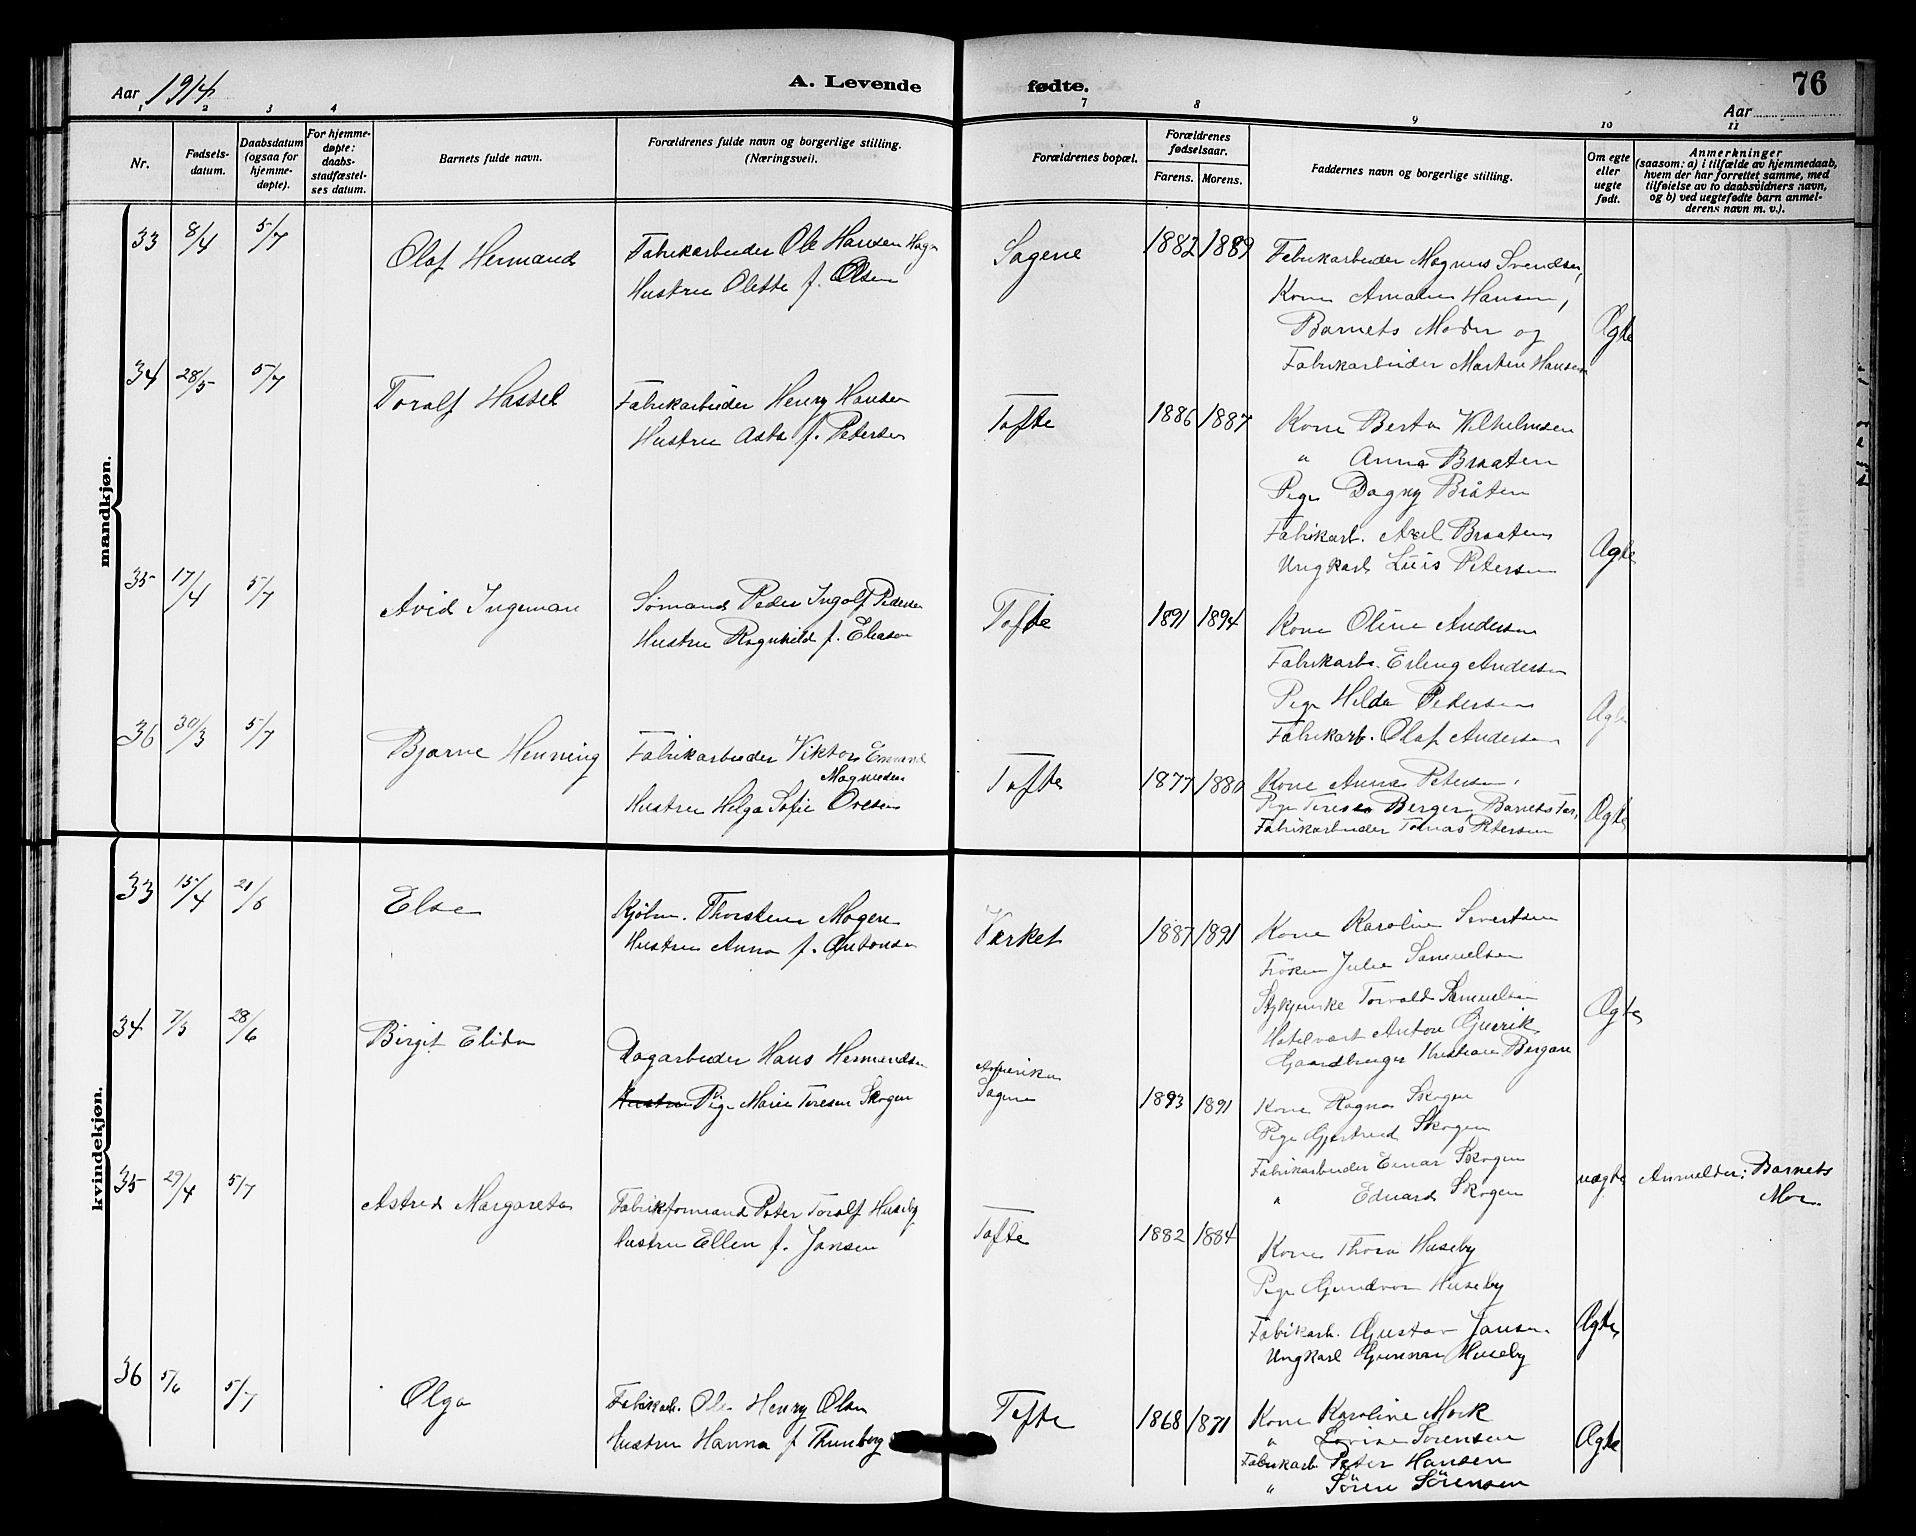 Aar 1914
A. Levende
fødte.
76
Aar
1 2 3 4 7 8 9 10 11
Nr.
Fødsels-
datum.
Daabsdatum
(ogsaa for
hjemme-
døpte).
For hjemme-
døpte:
daabs-
stadfæstel-
ses datum.
Barnets fulde navn.
Forældrenes fulde navn og borgerlige stilling.
(Næringsvei).
Forældrenes bopæl.
Forældrenes
fødselsaar.
Farens. Morens.
Faddernes navn og borgerlige stilling.
Om egte
eller
uegte
født.
Anmerkninger
(saasom: a) i tilfælde av hjemmedaab,
hvem der har forrettet samme, med
tilføielse av to daabsvidners navn,
og b) ved uegtefødte barn anmel-
derens navn m. v.).
mandkjøn.
33 8/4 5/7
Olaf Hermand
Fabrikarbeider Ole Hansen
Hustru Olette f. Olsen
Sagene
1882 1889
Fabrikarbeider Magnus Svendsen,
Kone Hansen,
Barnets Moder og
Fabrikarbeider Marten Hansen
Ægte
34 28/5 5/7
Toralf Hassel
Fabrikarbeider Henry Hansen
Hustru Asta f. Petersen
Tofte
1886 1887
Kone Berta Wilhelmsen
" Anna Braaten
Pige Dagny Bråten
Fabrikarb. Axel Braaten
Ungkarl Luis Petersen
Ægte
35 17/4 5/7
Avid Ingeman
Sømand Peder Ingolf Pedersen
Hustru Ragnhild f. Eliason
Tofte
1891 1894
Kone Oline Andersen
Fabrikarb. Erling Andersen
Pige Hilda Pedersen
Fabrikarb. Olaf Andersen
Ægte
36 30/3 5/7
Bjarne Henning
Fabrikarbeider Viktor
Magnusen
Hustru Helga Sofie Olesen
Tofte
1877 1880
Kone Anna Petersen,
Pige Teresa Berger, Barnets Far,
Fabrikarbeider Tomas Petersen
Ægte
kvindekjøn.
33 15/4 21/6
Else
Kjøbm. Thorstein Mogen
Hustru Anna f. Antonsen
Verket
1887 1891
Kone Karoline Sivertsen
Frøken Julie Samuelsen
Torvald Samuelsen
Hotelvært Anton
Gaardbruger Kristian Bergan
Ægte
34 7/3 28/6
Birgit Elida
Dagarbeider Hans Hermandsen
Hustru Pige Marie Teresen Skogen
Amerika
Sagene
1893 1891
Kone Ragna Skogen
Pige Gjertrud Skogen
Fabrikarbeider Einar Skogen
" Edvard Skogen
uægte
Anmelder: Barnets
Mor.
35 29/4 5/7
Astrid Margareta
Fabrikformand Peter Toralf Huseby
Hustru Ellen f. Jansen
Tofte
1882 1884
Kone Thora Huseby
Pige Gundvor Huseby
Fabikarb. Gustav Jansen
Ungkarl Gunnar Huseby
Ægte
36 5/6 5/7
Olga
Fabrikarb. Ole Henry Olsen
Hustru Hanna f Thunberg
Tofte
1868 1871
Kone Karoline Mork
" Lovise Sørensen
Fabrikarb Peter Hansen
" Sören Sörensen
Ægte